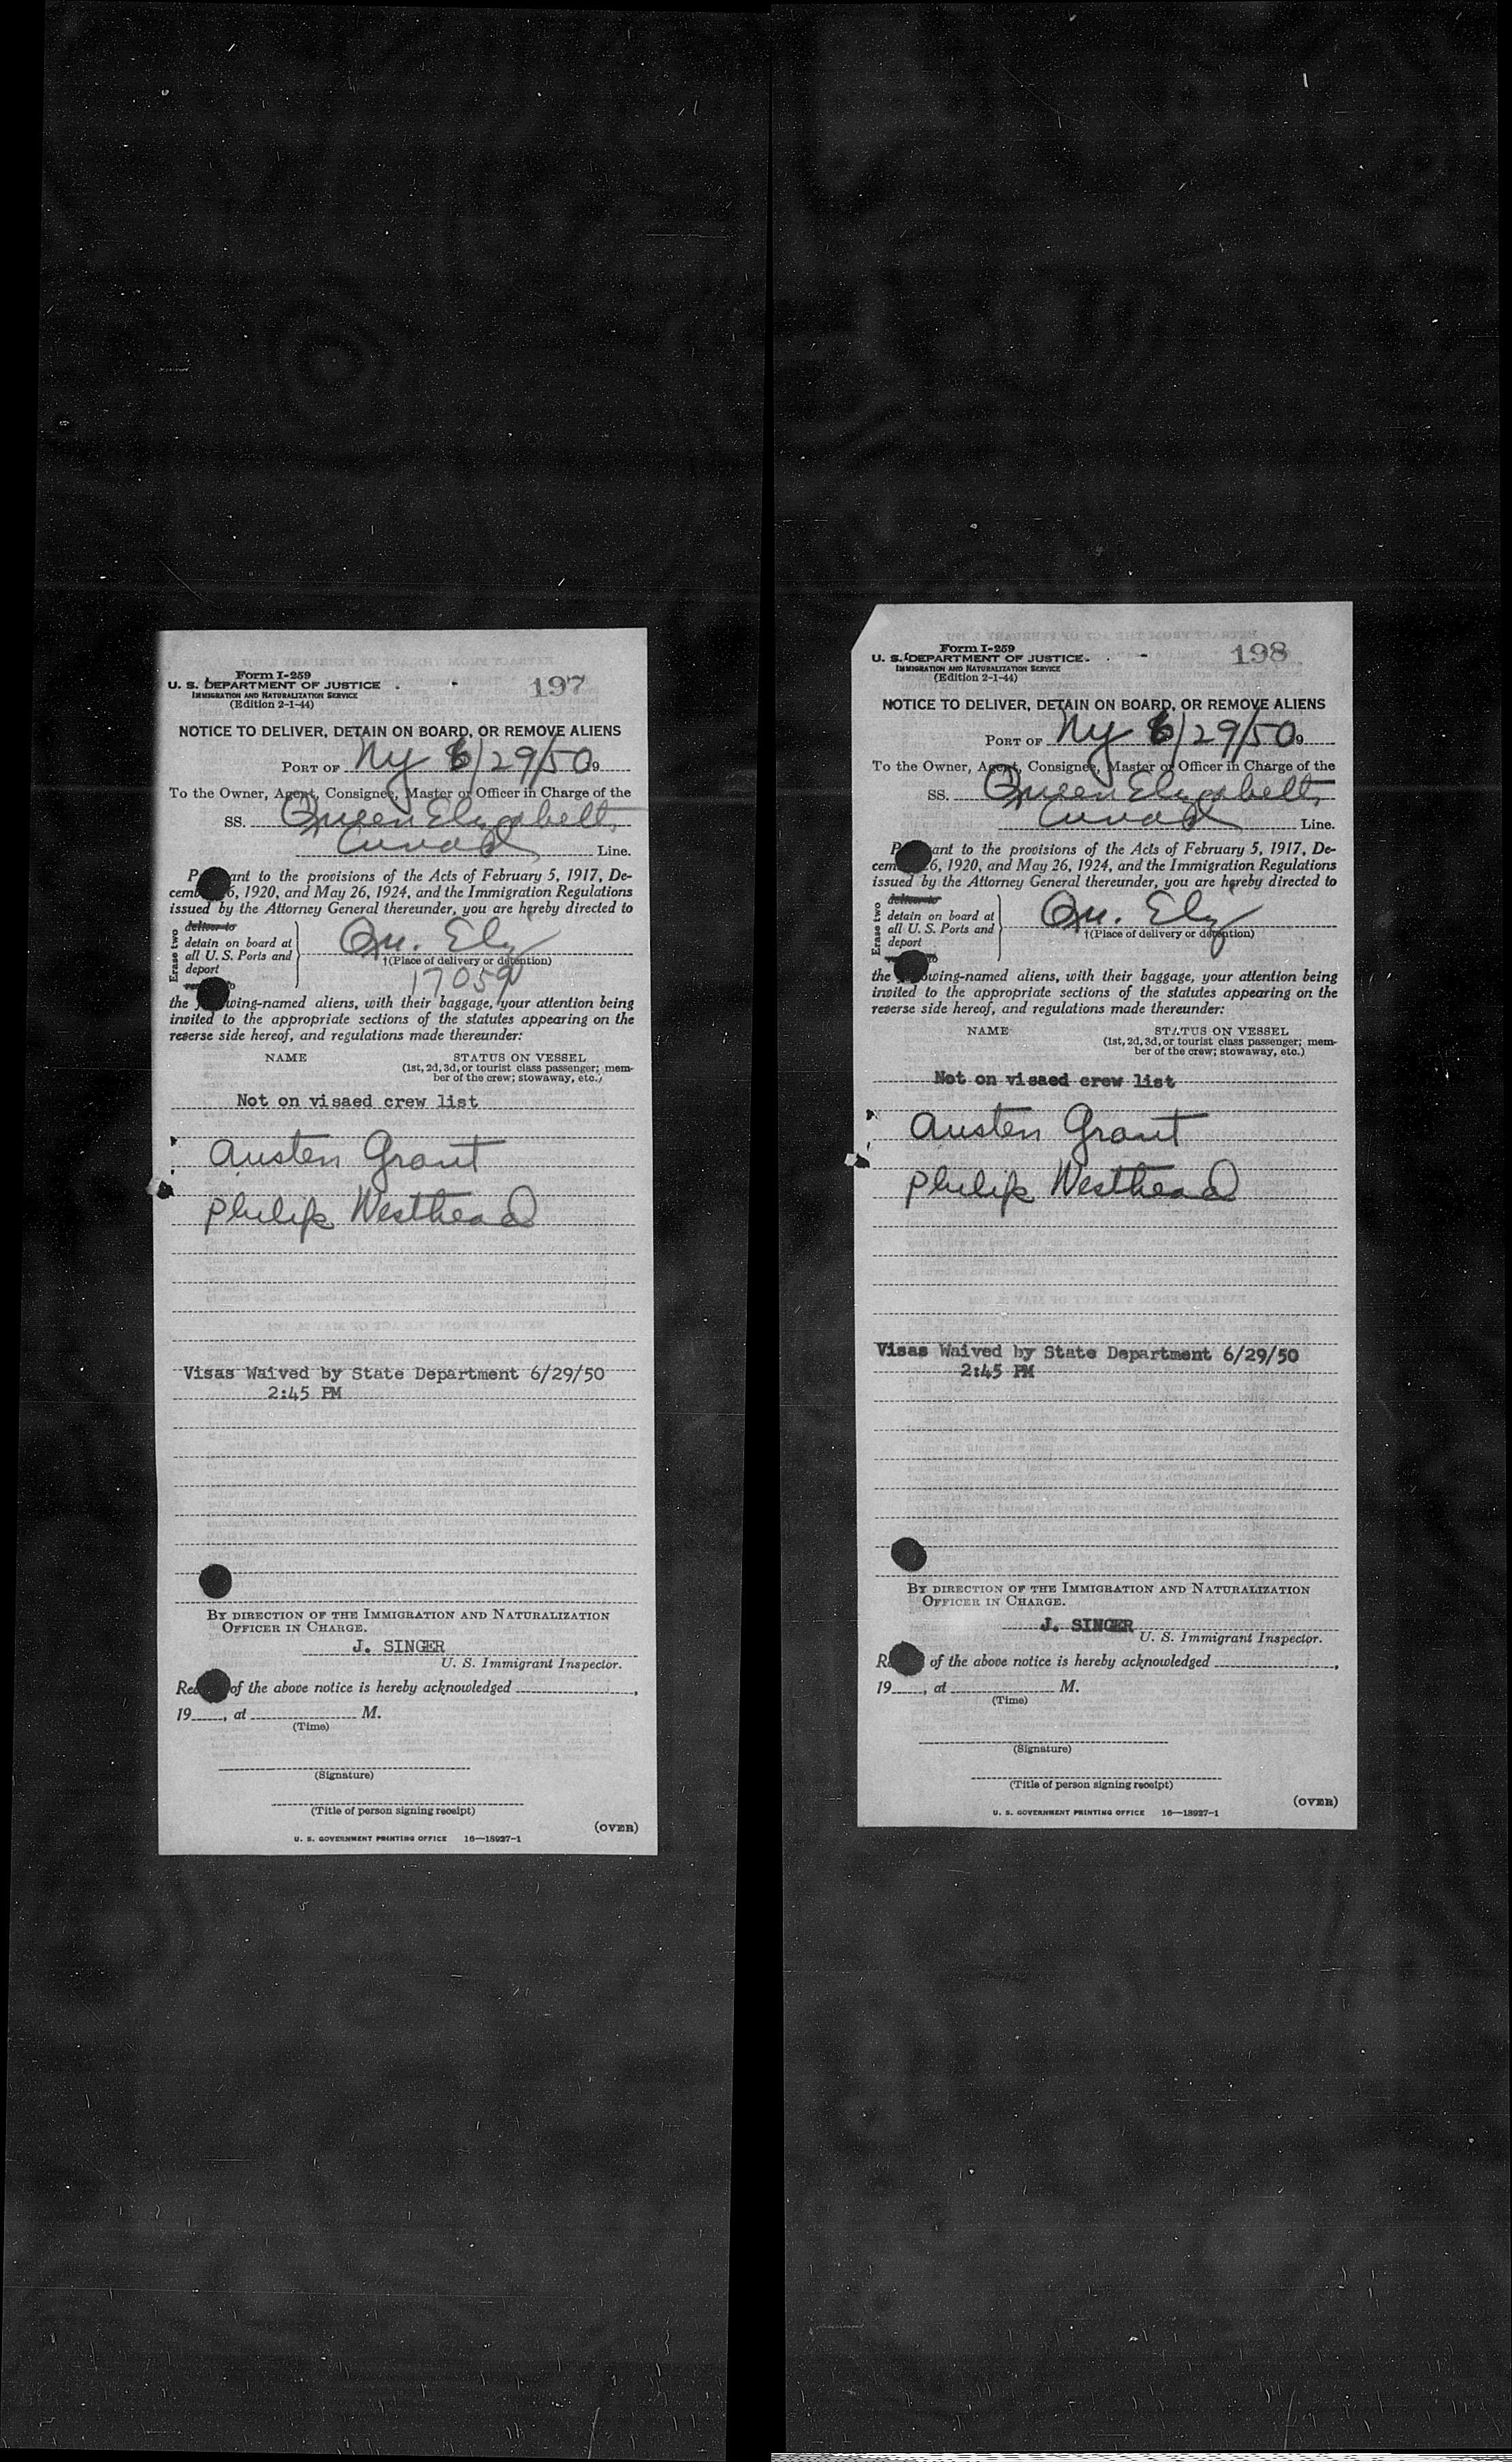 Form I-259
U. S. DEPARTMENT OF JUSTICE
IMMIGRATION AND NATURALIZATION SERVICE
(Edition 2-1-44)
197
NOTICE TO DELIVER, DETAIN ON BOARD, OR REMOVE ALIENS
PORT OF Ny 6/29/50 9
To the Owner, Agent, Consignee, Master or Officer in Charge of the
SS. Queen Elizabeth
Cunard Line.
P ant to the provisions of the Acts of February 5, 1917, De-
cemb 6, 1920, and May 26, 1924, and the Immigration Regulations
issued by the Attorney General thereunder, you are hereby directed to
Erase two
deliver to
detain on board at
all U. S. Ports and
deport
Qu. Eliz
†(Place of delivery or detention)
17059
the wing-named aliens, with their baggage, your attention being
invited to the appropriate sections of the statutes appearing on the
reverse side hereof, and regulations made thereunder:
NAME STATUS ON VESSEL
(1st, 2d, 3d, or tourist class passenger; mem-
ber of the crew; stowaway, etc.)
Not on visaed crew list
Austen Grant
Philip Westhead
Visas Waived by State Department 6/29/50
2:45 PM
BY DIRECTION OF THE IMMIGRATION AND NATURALIZATION
OFFICER IN CHARGE.
J. SINGER
U. S. Immigrant Inspector.
Rec of the above notice is hereby acknowledged ,
19 , at M.
(Time)
(Signature)
(Title of person signing receipt)
(OVER)
U. S. GOVERNMENT PRINTING OFFICE 16—18927-1
Form I-259
U. S. DEPARTMENT OF JUSTICE
IMMIGRATION AND NATURALIZATION SERVICE
(Edition 2-1-44)
198
NOTICE TO DELIVER, DETAIN ON BOARD, OR REMOVE ALIENS
PORT OF Ny 6/29/50 9
To the Owner, Agent, Consignee, Master or Officer in Charge of the
SS. Queen Elizabeth
Cunard Line.
P ant to the provisions of the Acts of February 5, 1917, De-
cem 26, 1920, and May 26, 1924, and the Immigration Regulations
issued by the Attorney General thereunder, you are hereby directed to
Erase two
deliver to
detain on board at
all U. S. Ports and
deport
Qu. Eliz
†(Place of delivery or detention)
the owing-named aliens, with their baggage, your attention being
invited to the appropriate sections of the statutes appearing on the
reverse side hereof, and regulations made thereunder:
NAME STATUS ON VESSEL
(1st, 2d, 3d, or tourist class passenger; mem-
ber of the crew; stowaway, etc.)
Not on visaed crew list
Austen Grant
Philip Westhead
Visas Waived by State Department 6/29/50
2:45 PM
BY DIRECTION OF THE IMMIGRATION AND NATURALIZATION
OFFICER IN CHARGE.
J. SINGER
U. S. Immigrant Inspector.
R of the above notice is hereby acknowledged ,
19 , at M.
(Time)
(Signature)
(Title of person signing receipt)
(OVER)
U. S. GOVERNMENT PRINTING OFFICE 16—18927-1